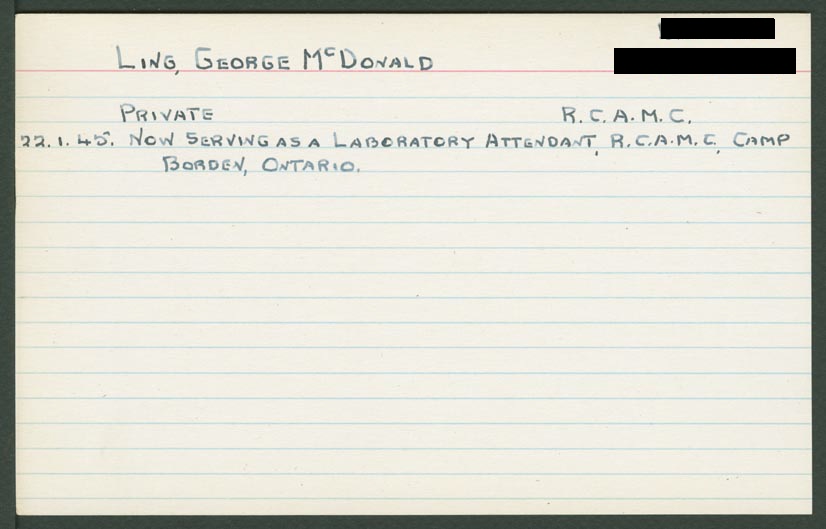 Ling, George McDonald
Private R.C.A.M.C.
22.1.45. Now serving as a Laboratory Attendant, R.C.A.M.C, Camp
Borden, Ontario.